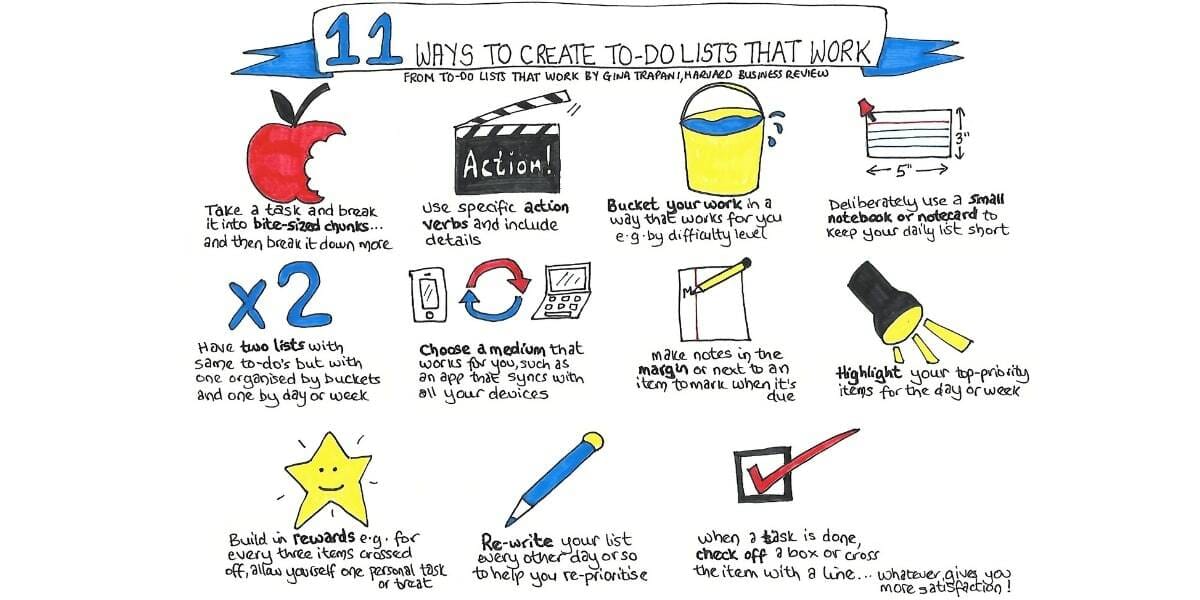 11 WAYS TO CREATE TO-DO LISTS THAT WORK
FROM TO-DO LISTS THAT WORK BY GINA TRAPANI, HARVARD BUSINESS REVIEW
Take a task and break
it into bite-sized chunks...
and then break it down more
Action!
Use specific action
verbs and include
details
Bucket your work in a
way that works for you
e.g. by difficulty level
3"
5"
Deliberately use a small
notebook or notecard to
keep your daily list short
x2
Have two lists with
same to-do's but with
one organised by buckets
and one by day or week
Choose a medium that
works for you, such as
an app that syncs with
all your devices
M
make notes in the
margin or next to an
item to mark when it's
due
Highlight your top-priority
items for the day or week
Build in rewards e.g. for
every three items crossed
off, allow yourself one personal task
or treat
Re-write your list
every other day or so
to help you re-prioritise
when a task is done,
check off a box or cross
the item with a line... whatever gives you
more satisfaction!